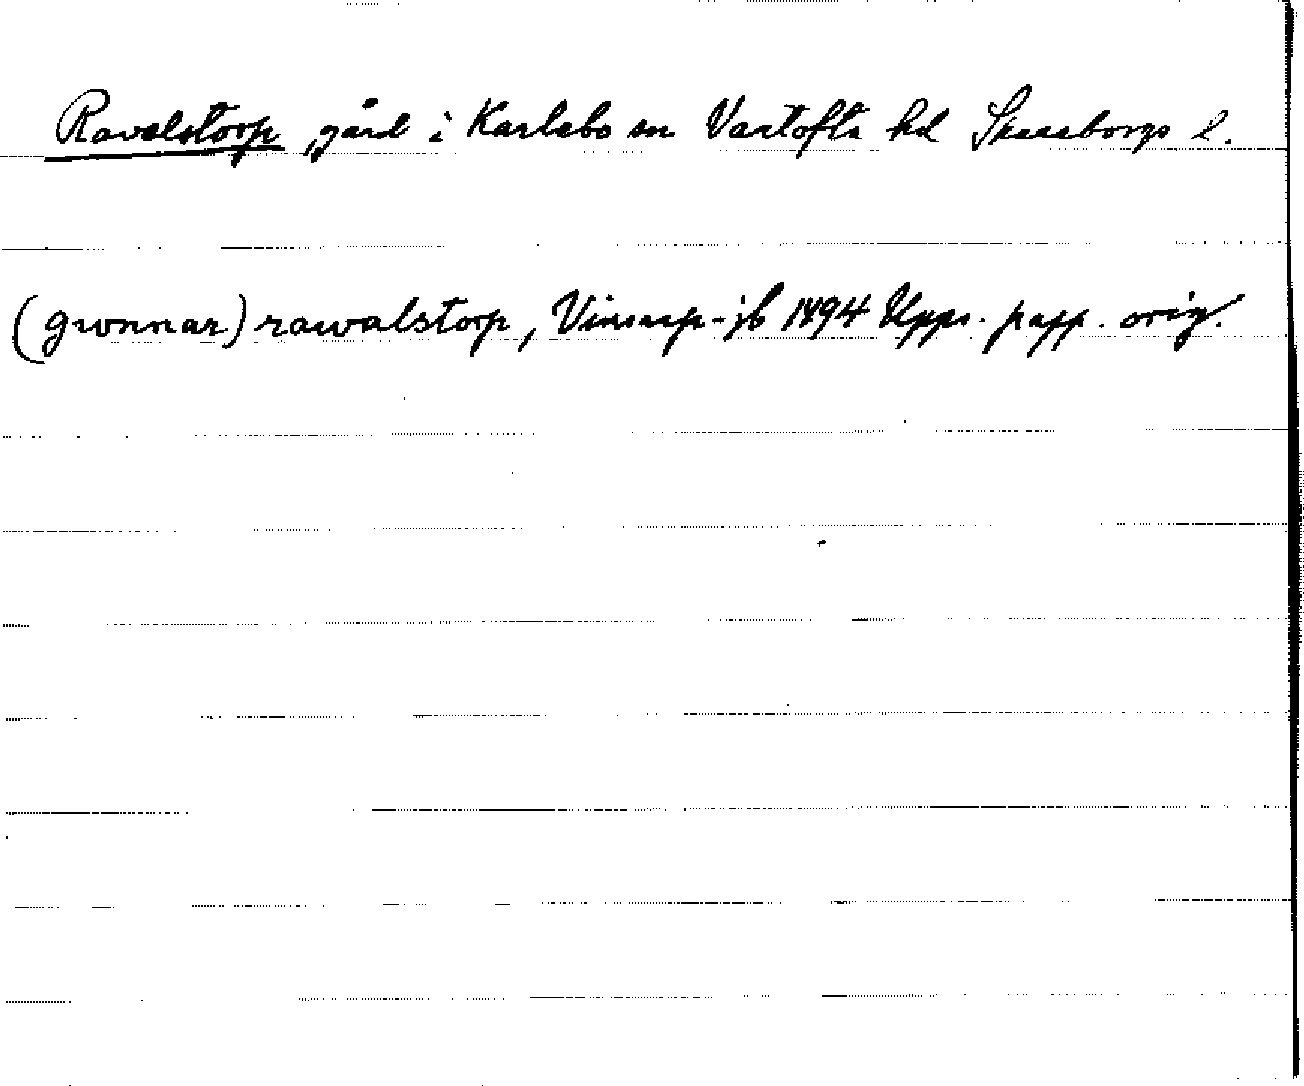 Ravalstorp, gård i Karlabo sn Vartofta hd Skaraborgs l.
(gwnnar) rawalstorp, Vinsarp-jb 1494 Upps. papp. orig.